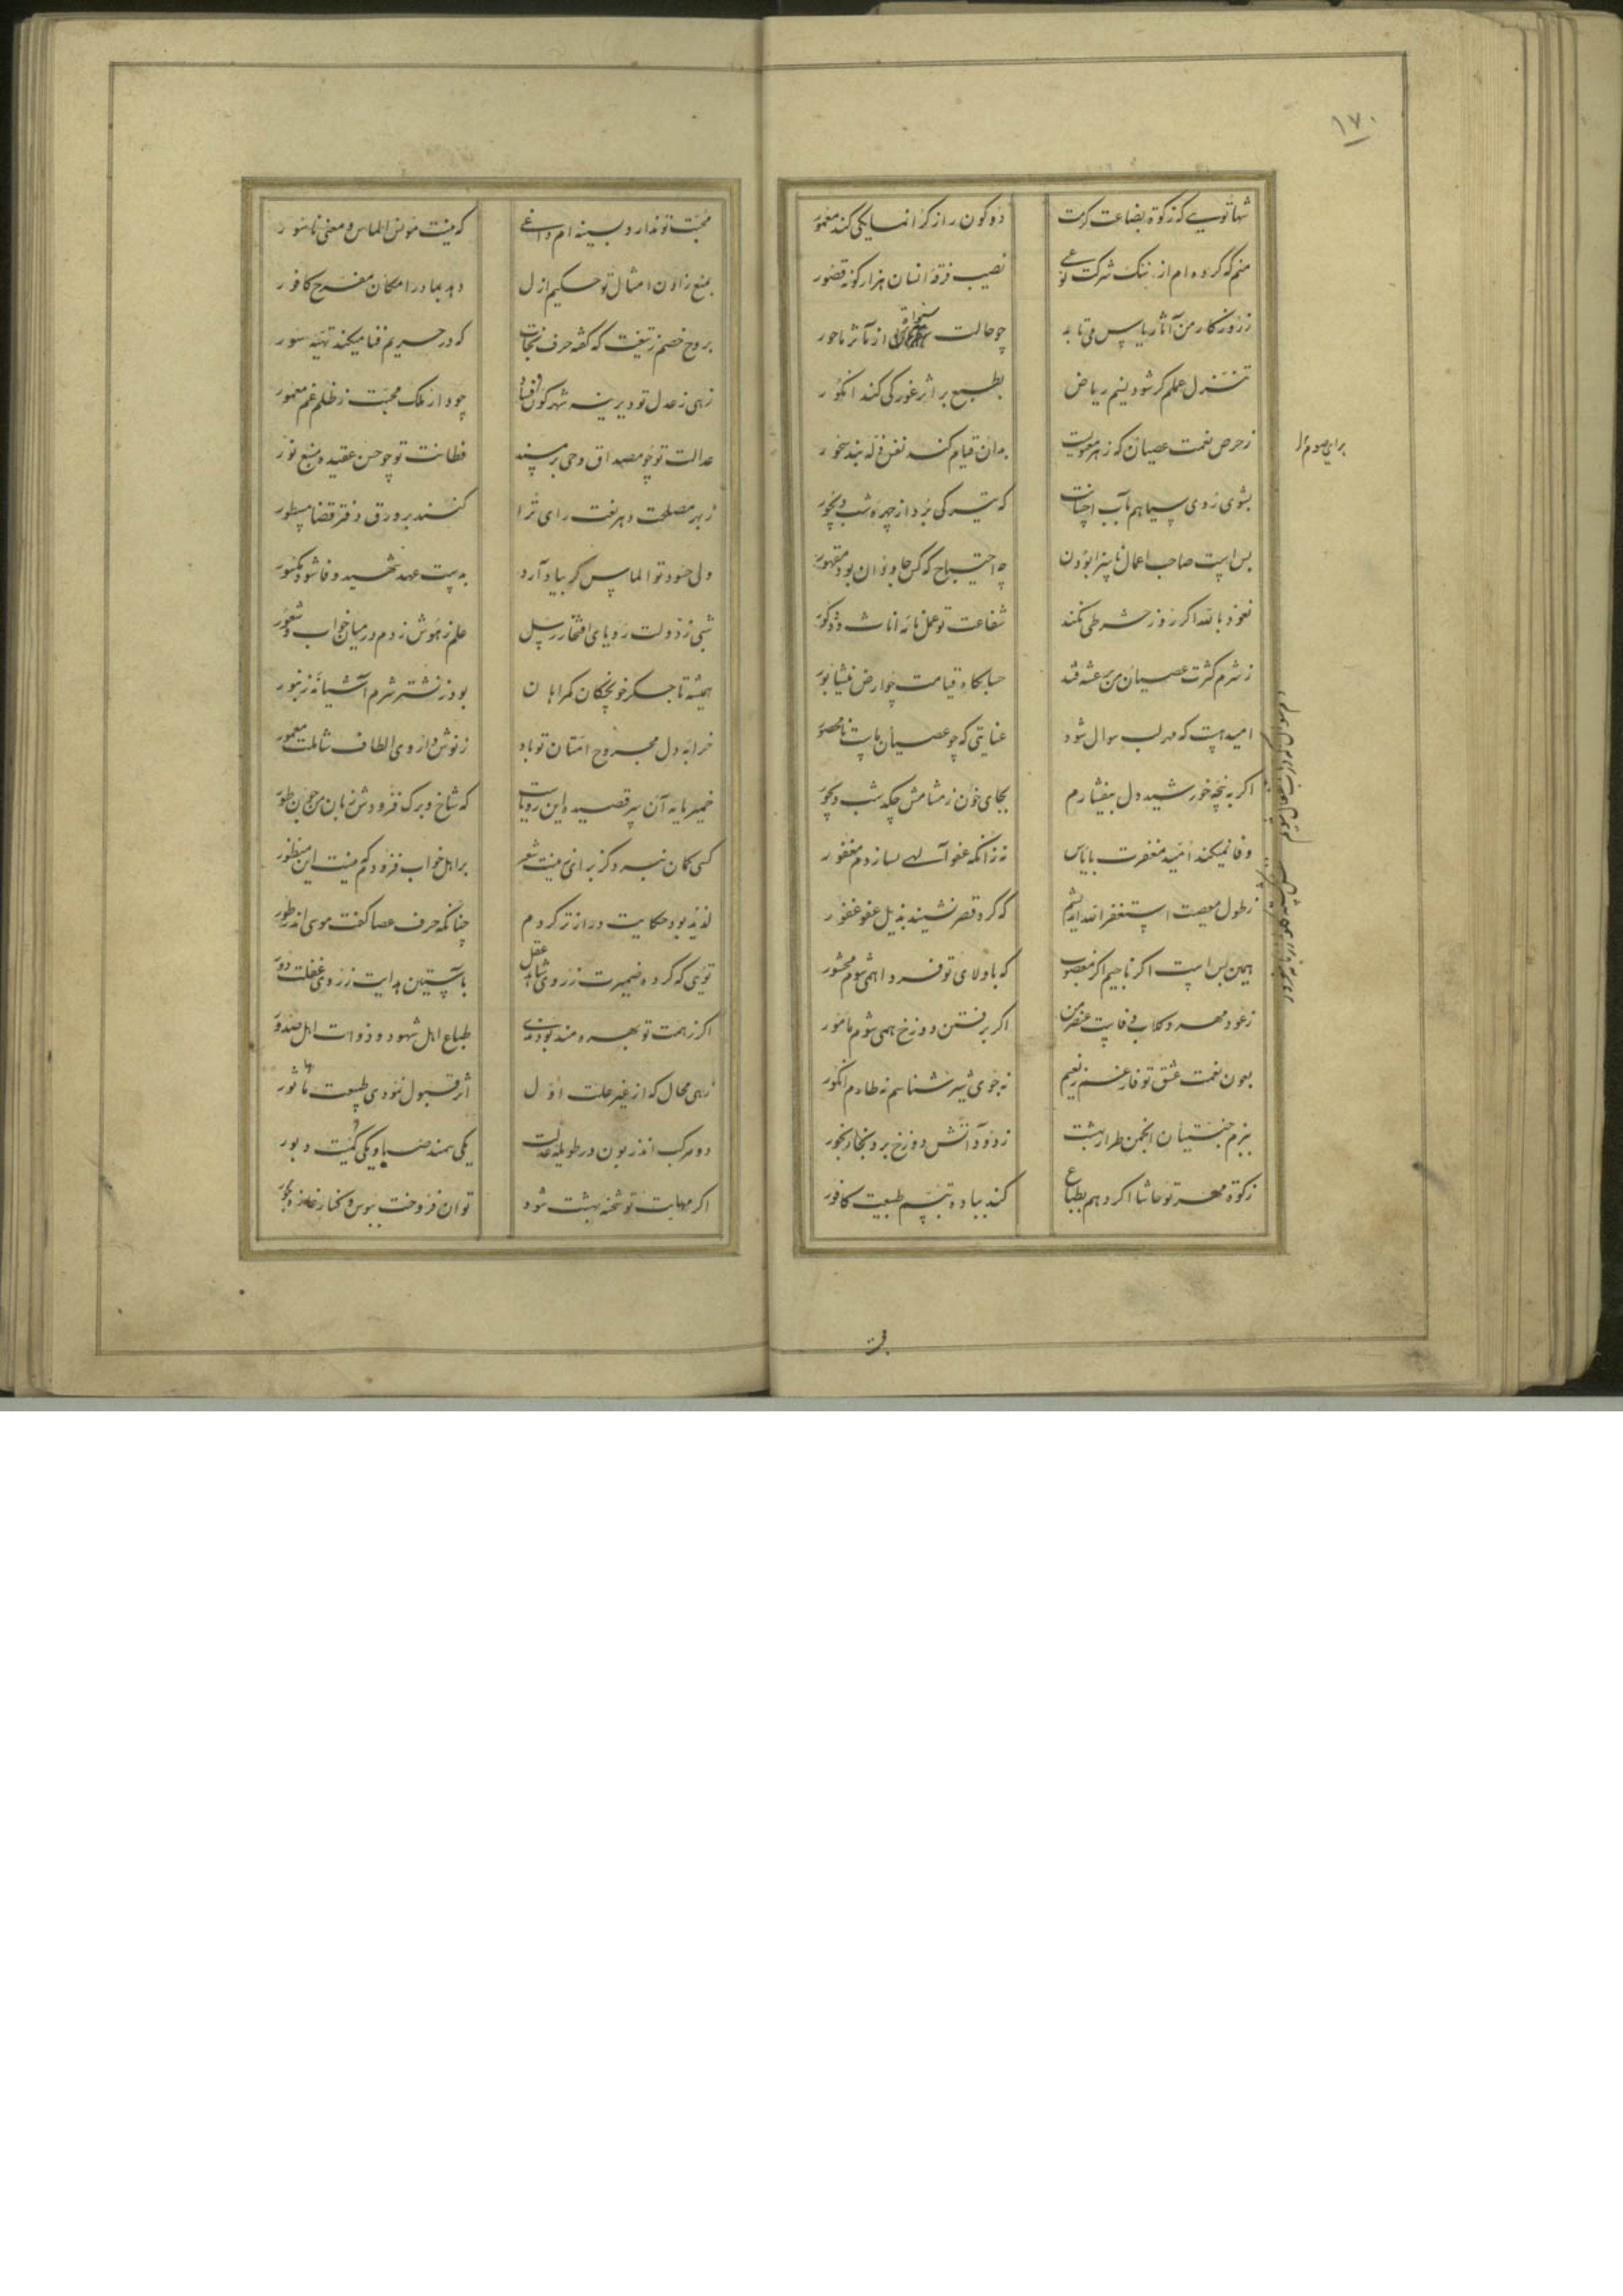 ۱۷۰
شها تویی که زکوة بضاعت کرمت
دو کون را ز کرانمایکی کند معمور
منم که کرده‌ام از ننک شرکت نوعی
نصیب فرقهٔ انسان هزار کونه قصور
ز روزکار من آثار یاس می‌تابد
چو حالت از تأثر ناحور
تنزل عملم کر شود نسیم ریاض
بطبع براثر غورکی کند انکور
ز حرص نعمت عصیان که زهر معنویست
بدان قیام کند نفس
بشوی روی سیاهم بآب احسانت
که تیرکی برد از چهرهٔ شب دیجور
بس است صاحب اعمال ناسزا بودن
چه احتیاج که کس جاودان بود مقهور
نعوذ بالله اکر روز حشر طی نکند
شفاعت تو عمل نامهٔ اناث و ذکور
ز شرم کثرت عصیان من برعشه فتد
حسابکاه قیامت چو ارض نیشابور
امید هست که مهر لب سوال شود
عنایتی که چو عصیان ماست نامحصور
اکر به پنجهٔ خورشید دل بیفشارم
بجای خون ز مشامش چکد شب دیجور
وفا نمیکند امید مغفرت با یاس
نه زانکه عفو آلهی نسازدم مغفور
ز طول معصیت استغفر الله اندیشم
که کرد قصر نشیند بذیل عفو غفور
همین بس است اکر ناجیم اکر مغضوب
که با ولای تو فردا همی شوم محشور
ز عود مهر و کلاب وفاست عنصر من
اکر برفتن دوزخ همی شوم مامور
بعون نعمت عشق تو فارغم ز نعیم
نه جوی شیر شناسم نه طارم انکور
ببزم جنتیان انجمن طراز بهشت
ز دود آتش دوزخ برد بخار بخور
زکوة مهر تو حاشا اکر دهم بطباع
کند بباده تبسم طبیعت کافور
محبت تو ندارد بسینه‌ام داغی
که نیست مونس الماس و معنی ناسور
بمنع زادن امثال تو حکیم ازل
دهد بمادر امکان مفرح کافور
بروح خصم ز تیغت که کفته حرف نجات
که در حریم فنا میکند تهیهٔ سور
زهی ز عدل تو دیرینه شهر کون و فساد
چو دار ملک محبت ز ظلم غم معمور
عدالت تو چو مصداق وحی سپند
فطانت تو چو حسن عقیده منبع نور
ز بهر مصلحت دهر نعت رای ترا
کنند بر ورق دفتر قضا مسطور
دلی حسود تو الماس کر بیاد آرد
بدست عهد شهید وفا شود مکسور
شبی ز دولت رویای افتخار رسل
علم ز هوش زدم در میان خواب و شعور
همیشه تا جکر خونچکان کمراهان
بود ز نشتر شرم آشیانهٔ زنبور
خرابهٔ دل مجروح امتان تو باد
ز نوشداروی الطاف شاملت معمور
خمیرمایهٔ آن پر قصیده این رویاست
که شاخ و برک فزودش زبان من چون طور
کسی کمان نبرد کز برای نیت شعر
بر اهل خواب فزودم که نیست این منظور
لذیذ بود حکایت دراز تر کردم
چنانکه حرف عصا کفت موسی اندر طور
تویی که کرده ضمیرت ز روی شاهد عقل
بآستین هدایت ز روی غفلت دور
اکر ز همت تو بهره‌مند بودندی
طباع اهل شهود و ذوات اهل صدور
زهی محال که از غیر علت اول
اثر قبول نمودی طبیعت ماثور
دو مرکب اند زبون در طویلهٔ عدلت
یکی سمند صبا و یکی کمیت دبور
اکر مهابت تو شحنهٔ بهشت شود
توان فروخت ببوس و کنار غلمان و حور